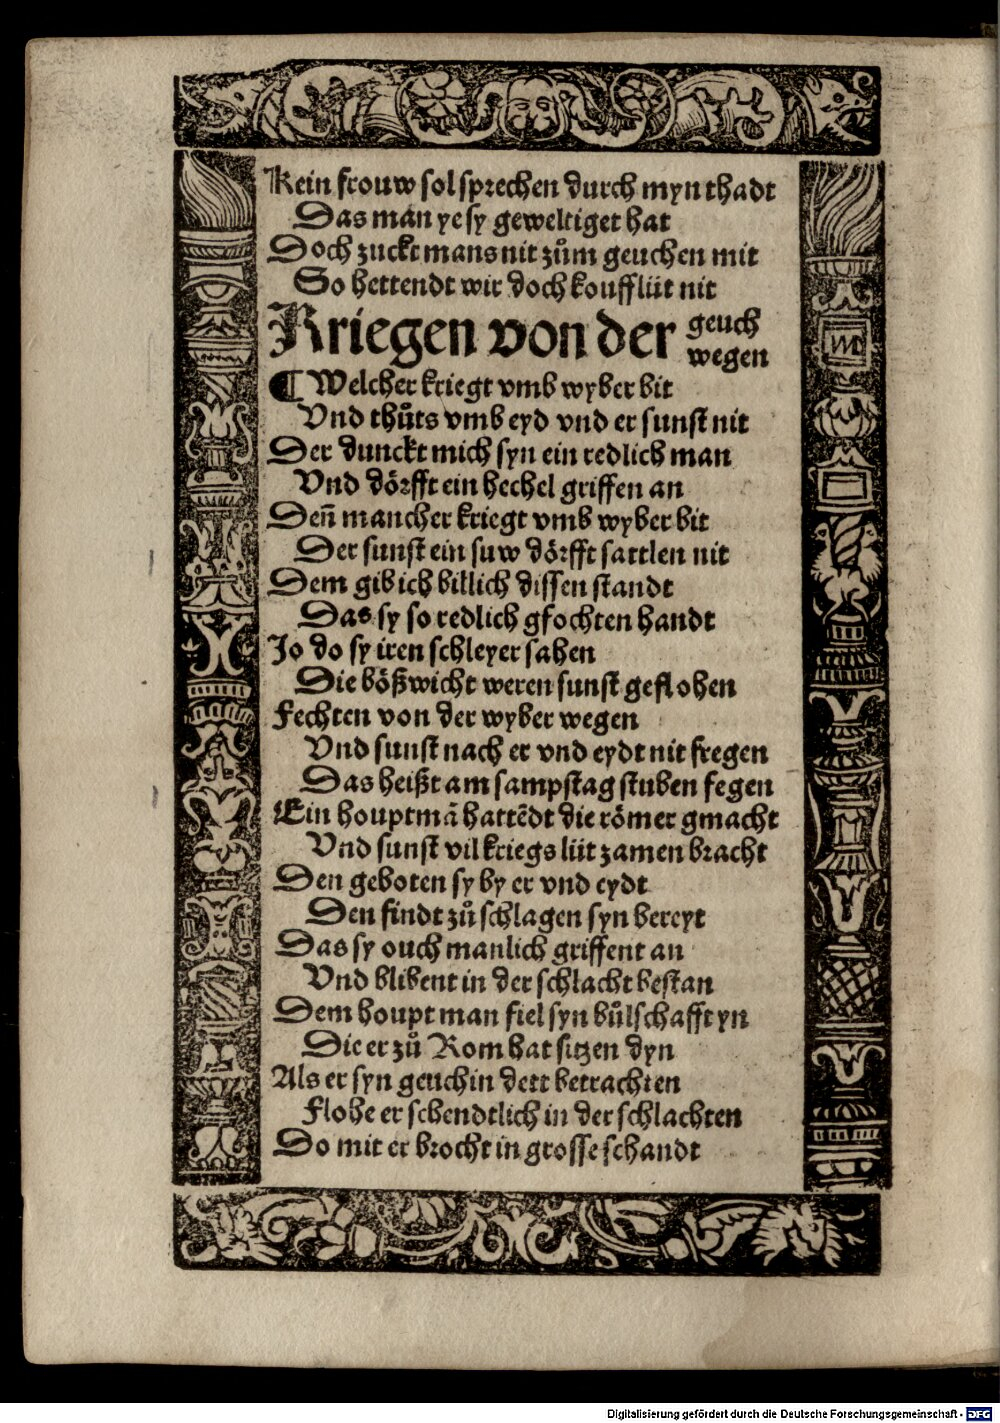 Kein frouw sol sprechen durch myn thadt
Das man ye sy geweltiget hat
Doch zuckt mans nit zům geuchen mit
So hettendt wir doch koufflüt nit
Kriegen von der geuch
wegen
¶ Welcher kriegt vmb wyber bit
Vnd thůts vmb eyd vnd er sunst nit
Der dunckt mich syn ein redlich man
Vnd dörfft ein hechel griffen an
Deñ mancher kriegt vmb wyber bit
Der sunst ein suw dörfft sattlen nit
Dem gib ich billich dissen standt
Das sy so redlich gfochten handt
Jo do sy iren schleyer sahen
Die bößwicht weren sunst geflohen
Fechten von der wyber wegen
Vnd sunst nach er vnd eydt nit fregen
Das heißt am sampstag stuben fegen
Ein houptmā hattēdt die römer gmacht
Vnd sunst vil kriegs lüt zamen bracht
Den geboten sy by er vnd eydt
Den findt zů schlagen syn bereyt
Das sy ouch manlich griffent an
Vnd blibent in der schlacht bestan
Dem houpt man fiel syn bůlschafft yn
Die er zů Rom hat sitzen dyn
Als er syn geuchin dett betrachten
Flohe er schendtlich in der schlachten
Do mit er brocht in grosse schandt
Digitalisierung gefördert durch die Deutsche Forschungsgemeinschaft - DFG